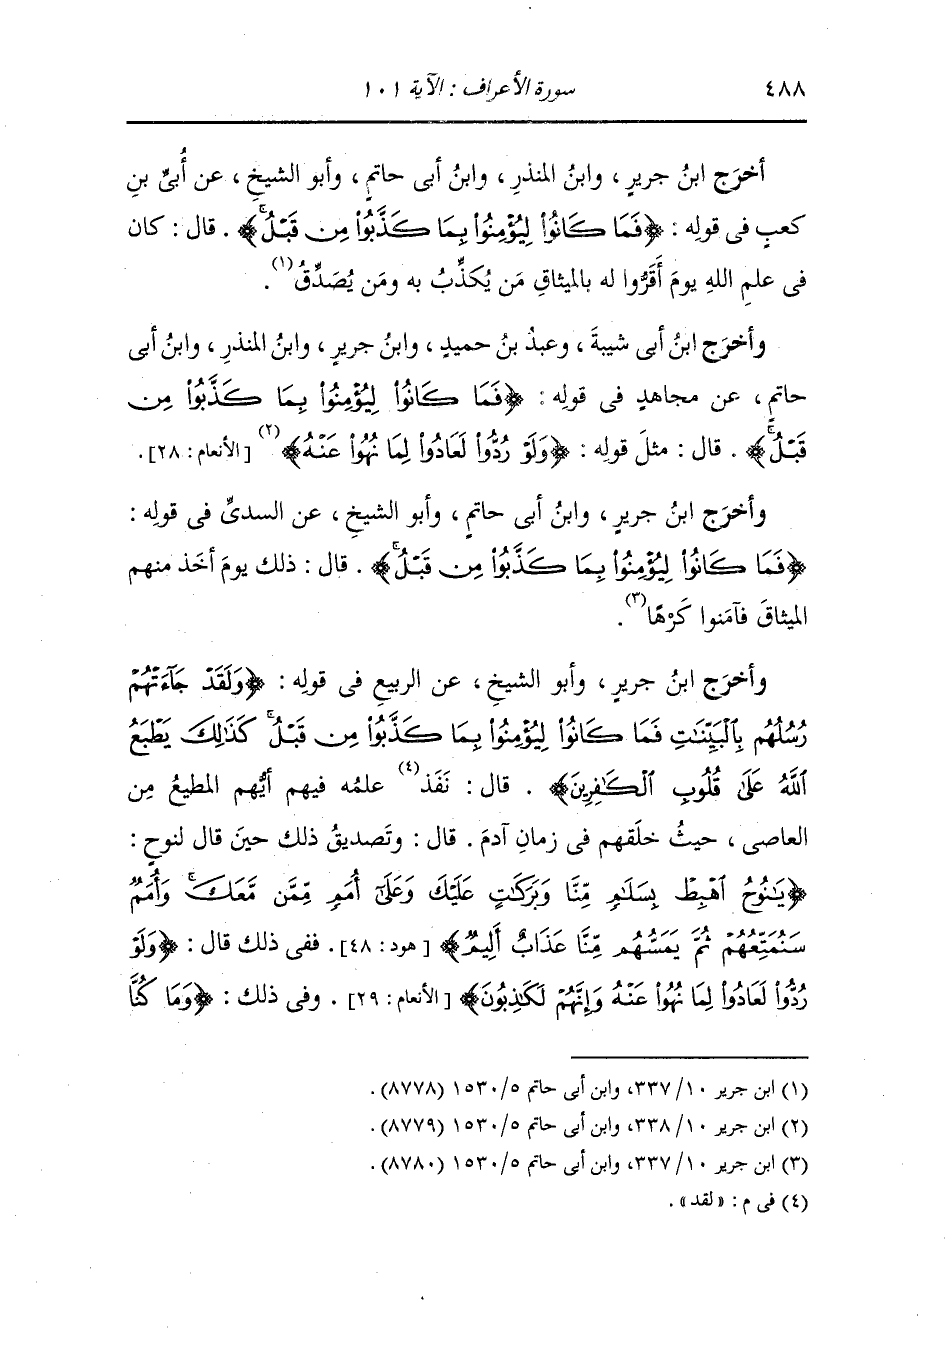 ٤٨٨ سورة الأعراف : الآية ١٠١
أخرَج ابنُ جريرٍ ، وابنُ المنذرِ ، وابنُ أبى حاتمٍ ، وأبو الشيخِ ، عن أُبىِّ بنِ
كعبٍ فى قولِه : ﴿فَمَا كَانُوا۟ لِيُؤْمِنُوا۟ بِمَا كَذَّبُوا۟ مِن قَبْلُ ۚ﴾ . قال : كان
فى علمِ اللهِ يومَ أَقَرُّوا له بالميثاقِ مَن يُكذِّبُ به ومَن يُصَدِّقُ(١) .
وأخرَج ابنُ أبى شيبةَ ، وعبدُ بنُ حميدٍ ، وابنُ جريرٍ ، وابنُ المنذرِ ، وابنُ أبى
حاتمٍ ، عن مجاهدٍ فى قولِه : ﴿فَمَا كَانُوا۟ لِيُؤْمِنُوا۟ بِمَا كَذَّبُوا۟ مِن
قَبْلُ ۚ﴾ . قال : مثلَ قولِه : ﴿وَلَوْ رُدُّوا۟ لَعَادُوا۟ لِمَا نُهُوا۟ عَنْهُ﴾(٢) [الأنعام : ٢٨] .
وأخرَج ابنُ جريرٍ ، وابنُ أبى حاتمٍ ، وأبو الشيخِ ، عن السدىِّ فى قولِه :
﴿فَمَا كَانُوا۟ لِيُؤْمِنُوا۟ بِمَا كَذَّبُوا۟ مِن قَبْلُ ۚ﴾ . قال : ذلك يومَ أخَذ منهم
الميثاقَ فآمَنوا كَرْهًا(٣) .
وأخرَج ابنُ جريرٍ ، وأبو الشيخِ ، عن الربيعِ فى قولِه : ﴿وَلَقَدْ جَآءَتْهُمْ
رُسُلُهُم بِٱلْبَيِّنَٰتِ فَمَا كَانُوا۟ لِيُؤْمِنُوا۟ بِمَا كَذَّبُوا۟ مِن قَبْلُ ۚ كَذَٰلِكَ يَطْبَعُ
ٱللَّهُ عَلَىٰ قُلُوبِ ٱلْكَٰفِرِينَ﴾ . قال : نَفَذ(٤) علمُه فيهم أيُّهم المطيعُ مِن
العاصى ، حيثُ خلَقهم فى زمانِ آدمَ . قال : وتَصديقُ ذلك حينَ قال لنوحٍ :
﴿يَٰنُوحُ ٱهْبِطْ بِسَلَٰمٍ مِّنَّا وَبَرَكَٰتٍ عَلَيْكَ وَعَلَىٰٓ أُمَمٍ مِّمَّن مَّعَكَ ۚ وَأُمَمٌ
سَنُمَتِّعُهُمْ ثُمَّ يَمَسُّهُم مِّنَّا عَذَابٌ أَلِيمٌ﴾ [هود : ٤٨] . ففى ذلك قال : ﴿وَلَوْ
رُدُّوا۟ لَعَادُوا۟ لِمَا نُهُوا۟ عَنْهُ وَإِنَّهُمْ لَكَٰذِبُونَ﴾ [الأنعام : ٢٩] . وفى ذلك : ﴿وَمَا كُنَّا
(١) ابن جرير ١٠/ ٣٣٧، وابن أبى حاتم ٥/ ١٥٣٠ (٨٧٧٨) .
(٢) ابن جرير ١٠/ ٣٣٨، وابن أبى حاتم ٥/ ١٥٣٠ (٨٧٧٩) .
(٣) ابن جرير ١٠/ ٣٣٧، وابن أبى حاتم ٥/ ١٥٣٠ (٨٧٨٠) .
(٤) فى م : «لقد» .